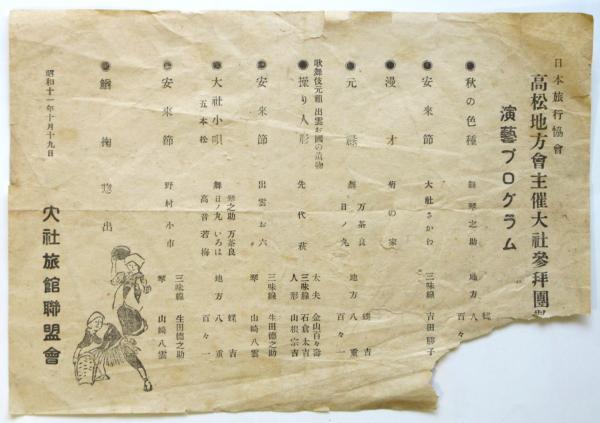 日本旅行協會
高松地方會主催大社參拜團
演藝プログラム
●秋の色種 舞 琴之助 地方 八 蝶
百々
●安來節 大社さかわ 三味線 吉田勝子
●漫才 菊の家
●元祿 舞 万茶良 日ノ丸 地方 蝶吉 八重 百々一
歌舞伎元祖出雲お國の遺物
●操り人形 先代萩 太夫 金山百々壽
三味線 石倉太吉
人形 山根宗吉
●安來節 出雲お六 三味線 生田德之助
琴 山崎八雲
●大社小唄 五本松 舞 琴之助 万茶良 日ノ丸 いろは 高音 若梅 地方 蝶吉 八重 百々一
●安來節 野村小市 三味線 生田德之助
琴 山崎八雲
●鰌掬 惣出
昭和十一年十月十九日
大社旅館聯盟會